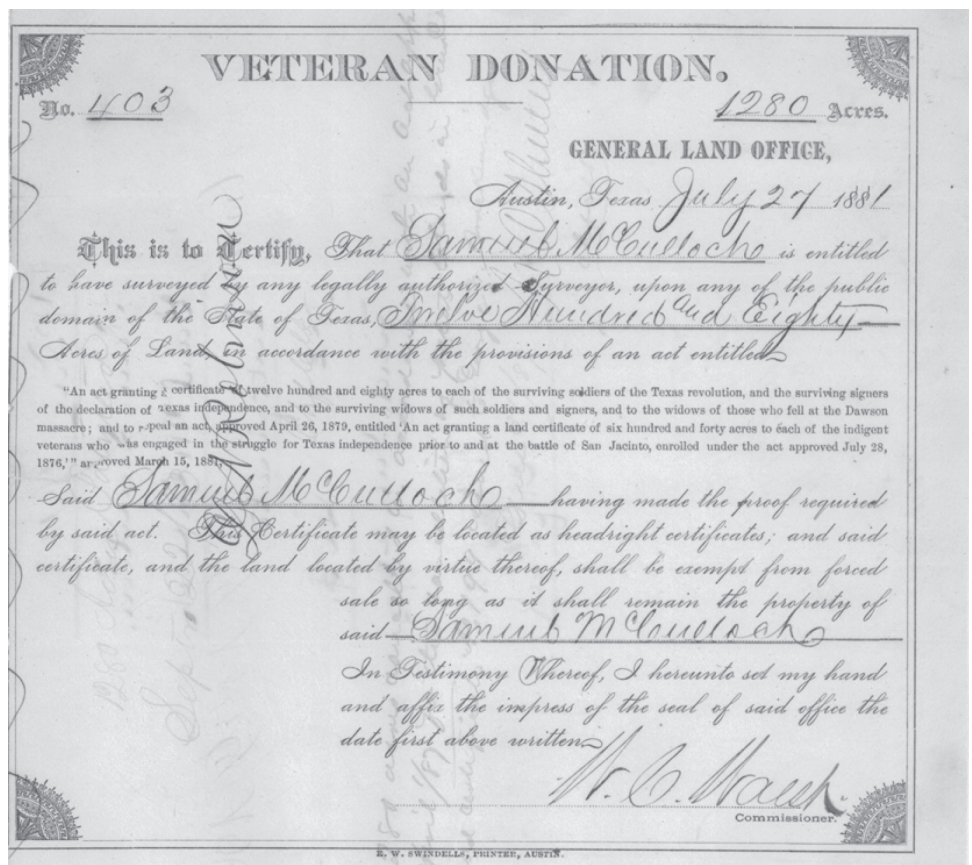 VETERAN DONATION.
No. 403
1280 Acres.
GENERAL LAND OFFICE,
Austin, Texas, July 27 1881
This is to Certify, That Samuel McCulloch is entitled
to have surveyed by any legally authorized Surveyor, upon any of the public
domain of the State of Texas, Twelve Hundred and Eighty
Acres of Land, in accordance with the provisions of an act entitled
"An act granting a certificate of twelve hundred and eighty acres to each of the surviving soldiers of the Texas revolution, and the surviving signers
of the declaration of Texas independence, and to the surviving widows of such soldiers and signers, and to the widows of those who fell at the Dawson
massacre; and to repeal an act, approved April 26, 1879, entitled 'An act granting a land certificate of six hundred and forty acres to each of the indigent
veterans who was engaged in the struggle for Texas independence prior to and at the battle of San Jacinto, enrolled under the act approved July 28,
1876,'" approved March 15, 1881,
Said Samuel McCulloch having made the proof required
by said act. This Certificate may be located as headright certificates; and said
certificate, and the land located by virtue thereof, shall be exempt from forced
sale so long as it shall remain the property of
said Samuel McCulloch
In Testimony Whereof, I hereunto set my hand
and affix the impress of the seal of said office the
date first above written
W. C. Walsh
Commissioner.
E. W. SWINDELLS, PRINTER, AUSTIN.